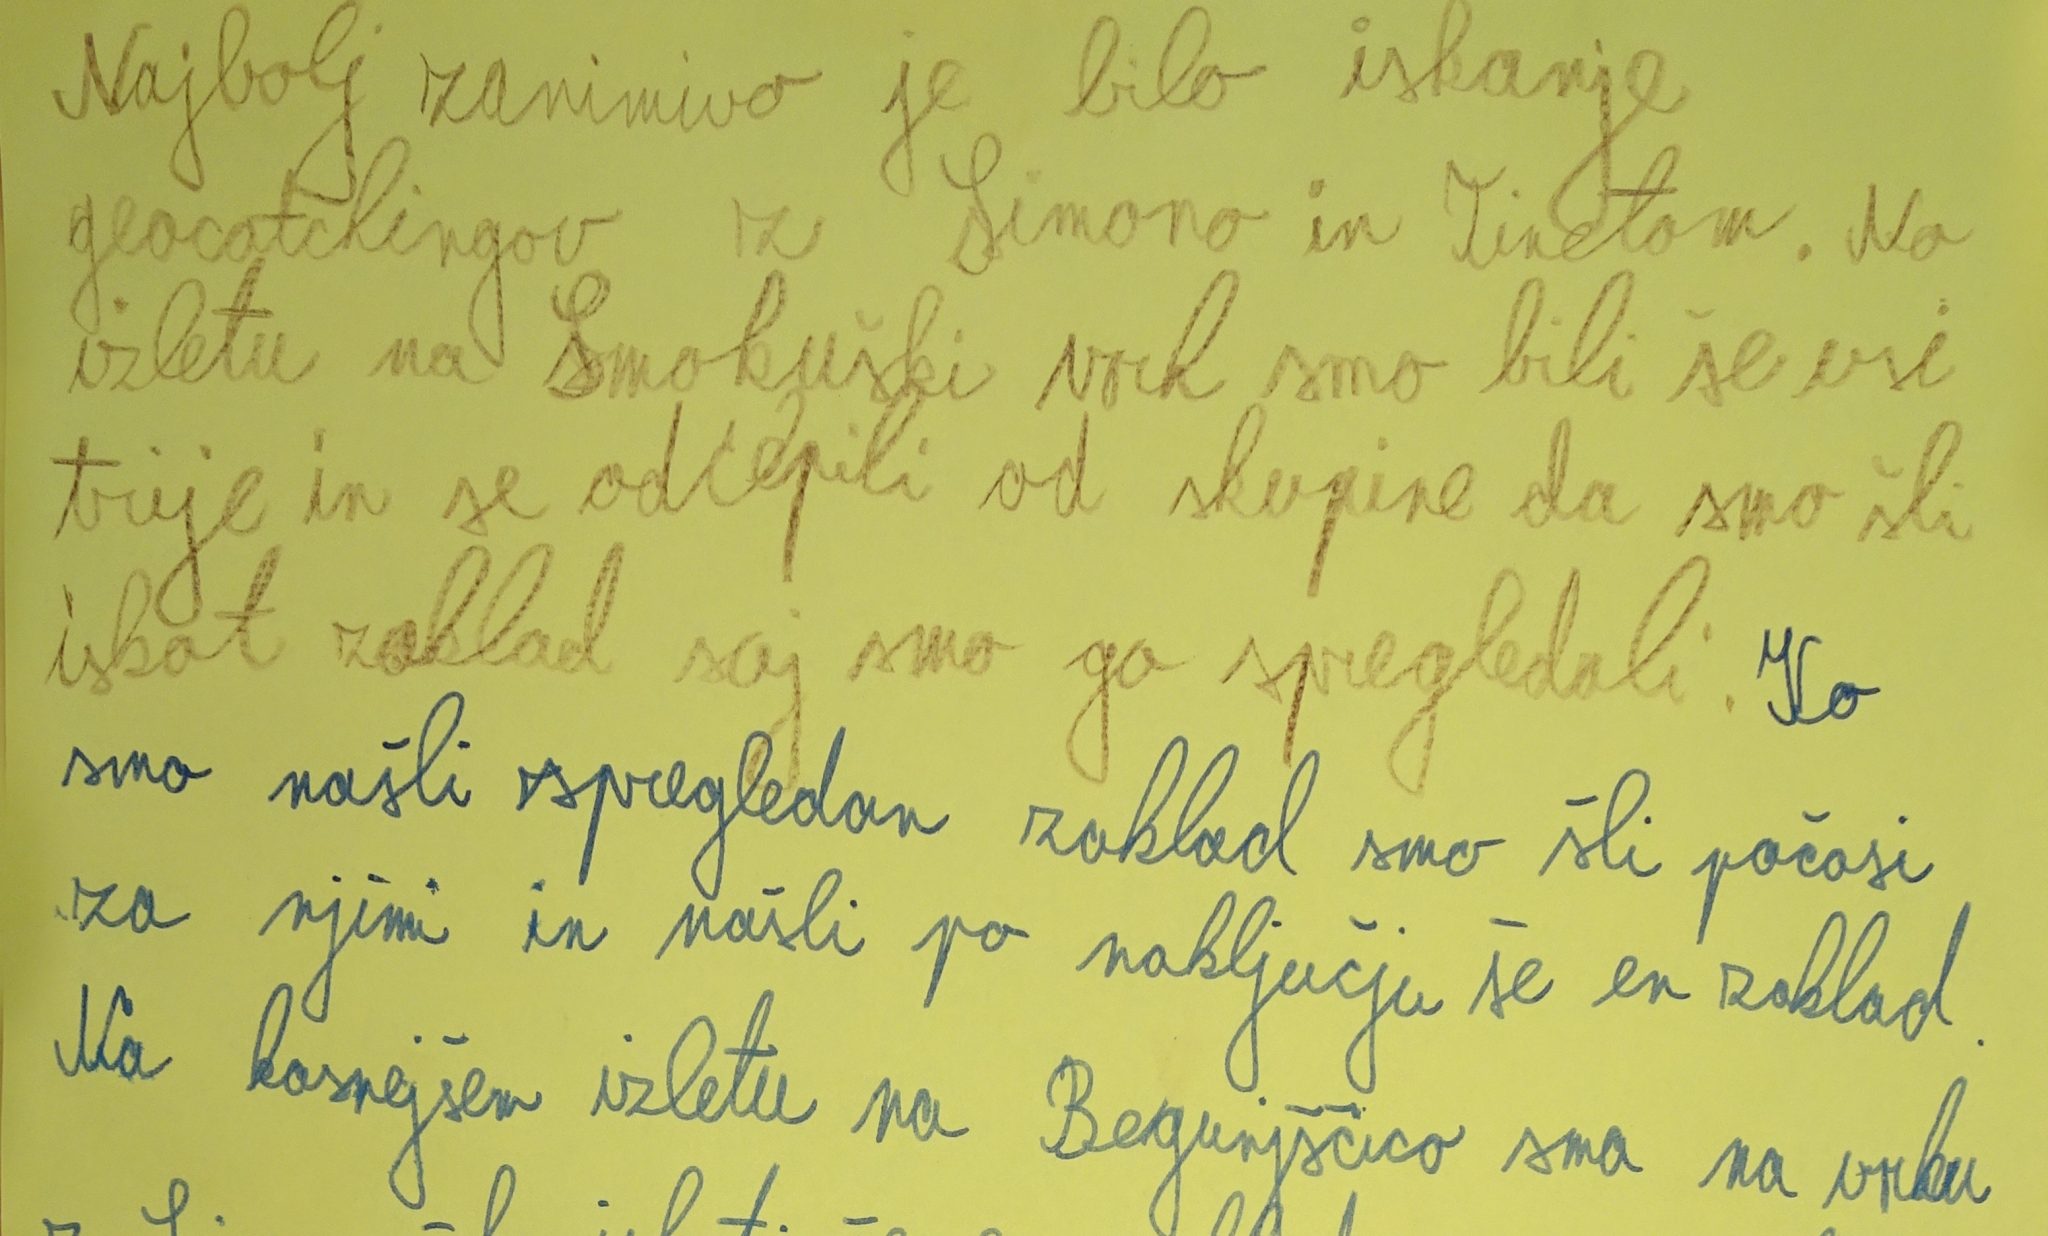 Najbolj zanimivo je bilo iskanje
geocatchingov iz Simono in Tinetom. Na
izletu na Smokuški vrh smo bili še vsi
trije in se odcepili od skupine da smo šli
iskat zaklad saj smo ga spregledali. Ko
smo našli spregledan zaklad smo šli počasi
za njimi in našli po naključju še en zaklad.
Na kasnejšem izletu na Begunjščico sma na vrhu